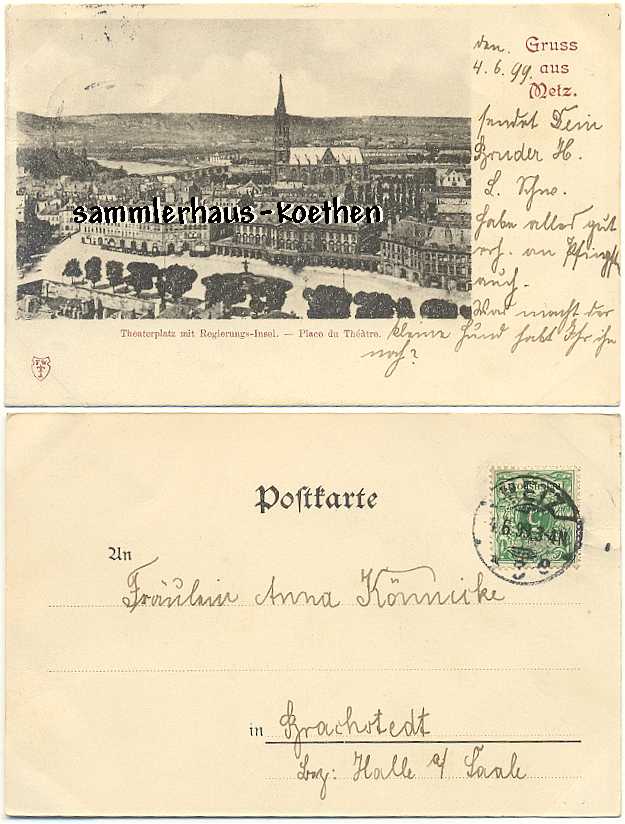 den. Gruss
4.6.99. aus
Metz.
sendet Dein
Bruder H.
L. Schw.
habe alles gut
erh. an Pfingst
auch.
Was macht der
kleine Hund habt Ihr ihn
noch?
sammlerhaus-koethen
Theaterplatz mit Regierungs-Insel. — Place du Théâtre.
Postkarte
METZ
4.6.99.3-4N
An
Fräulein Anna Könnicke
in Brachstedt
Bez: Halle a/ Saale